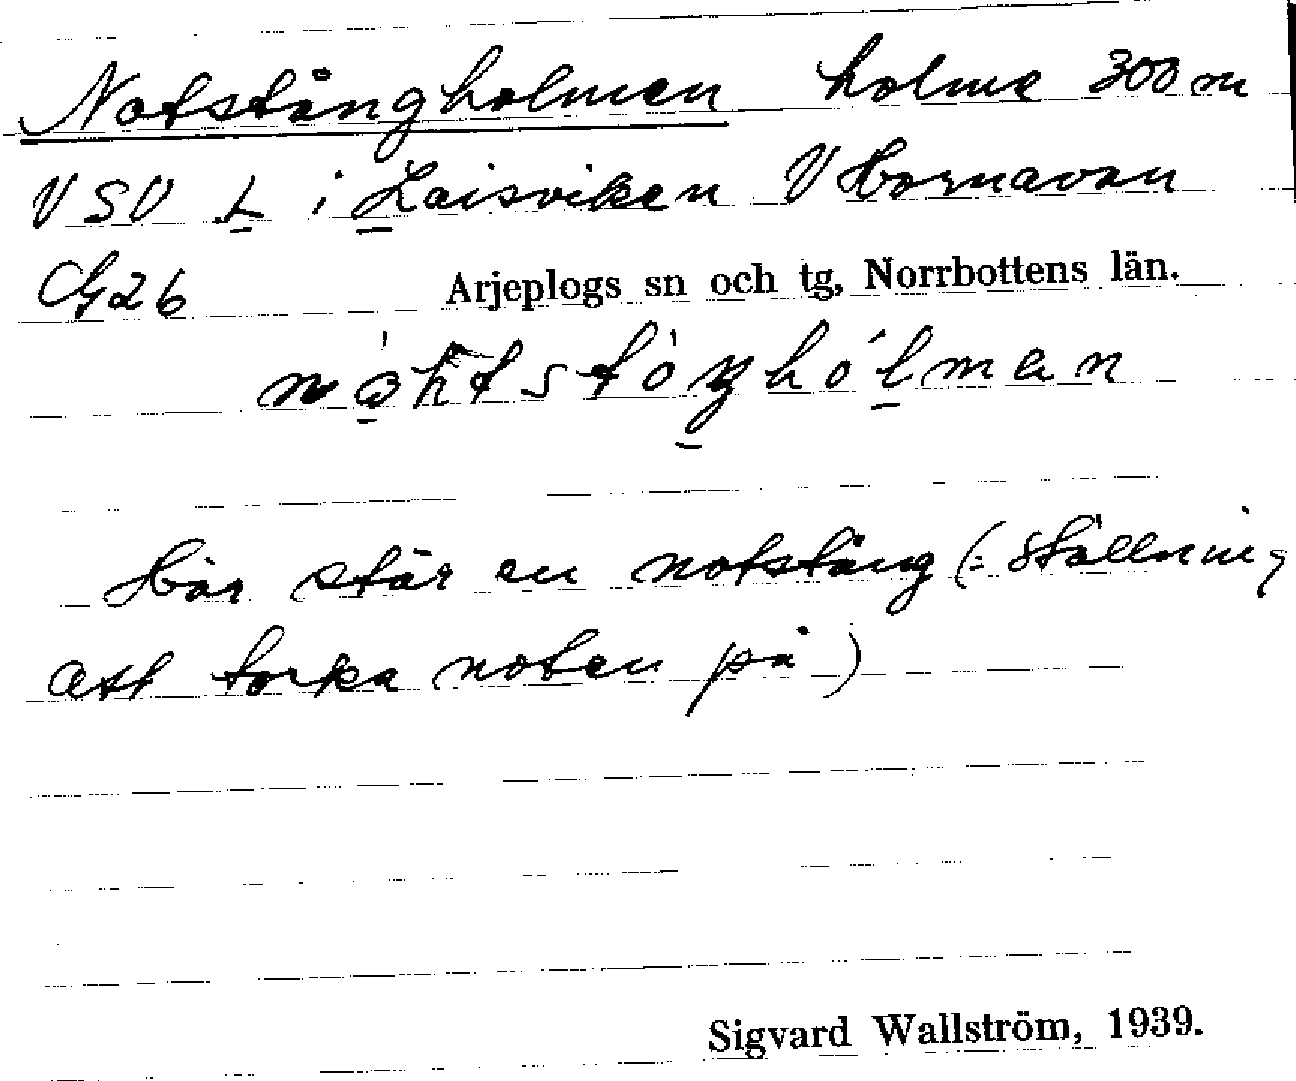 Notstångholmen holme 300 m
VSV L i Laisviken V Hornavan
G26 Arjeplogs sn och tg, Norrbottens län.
Här står en notstång (: ställning
att torka noten på)
Sigvard Wallström, 1939.